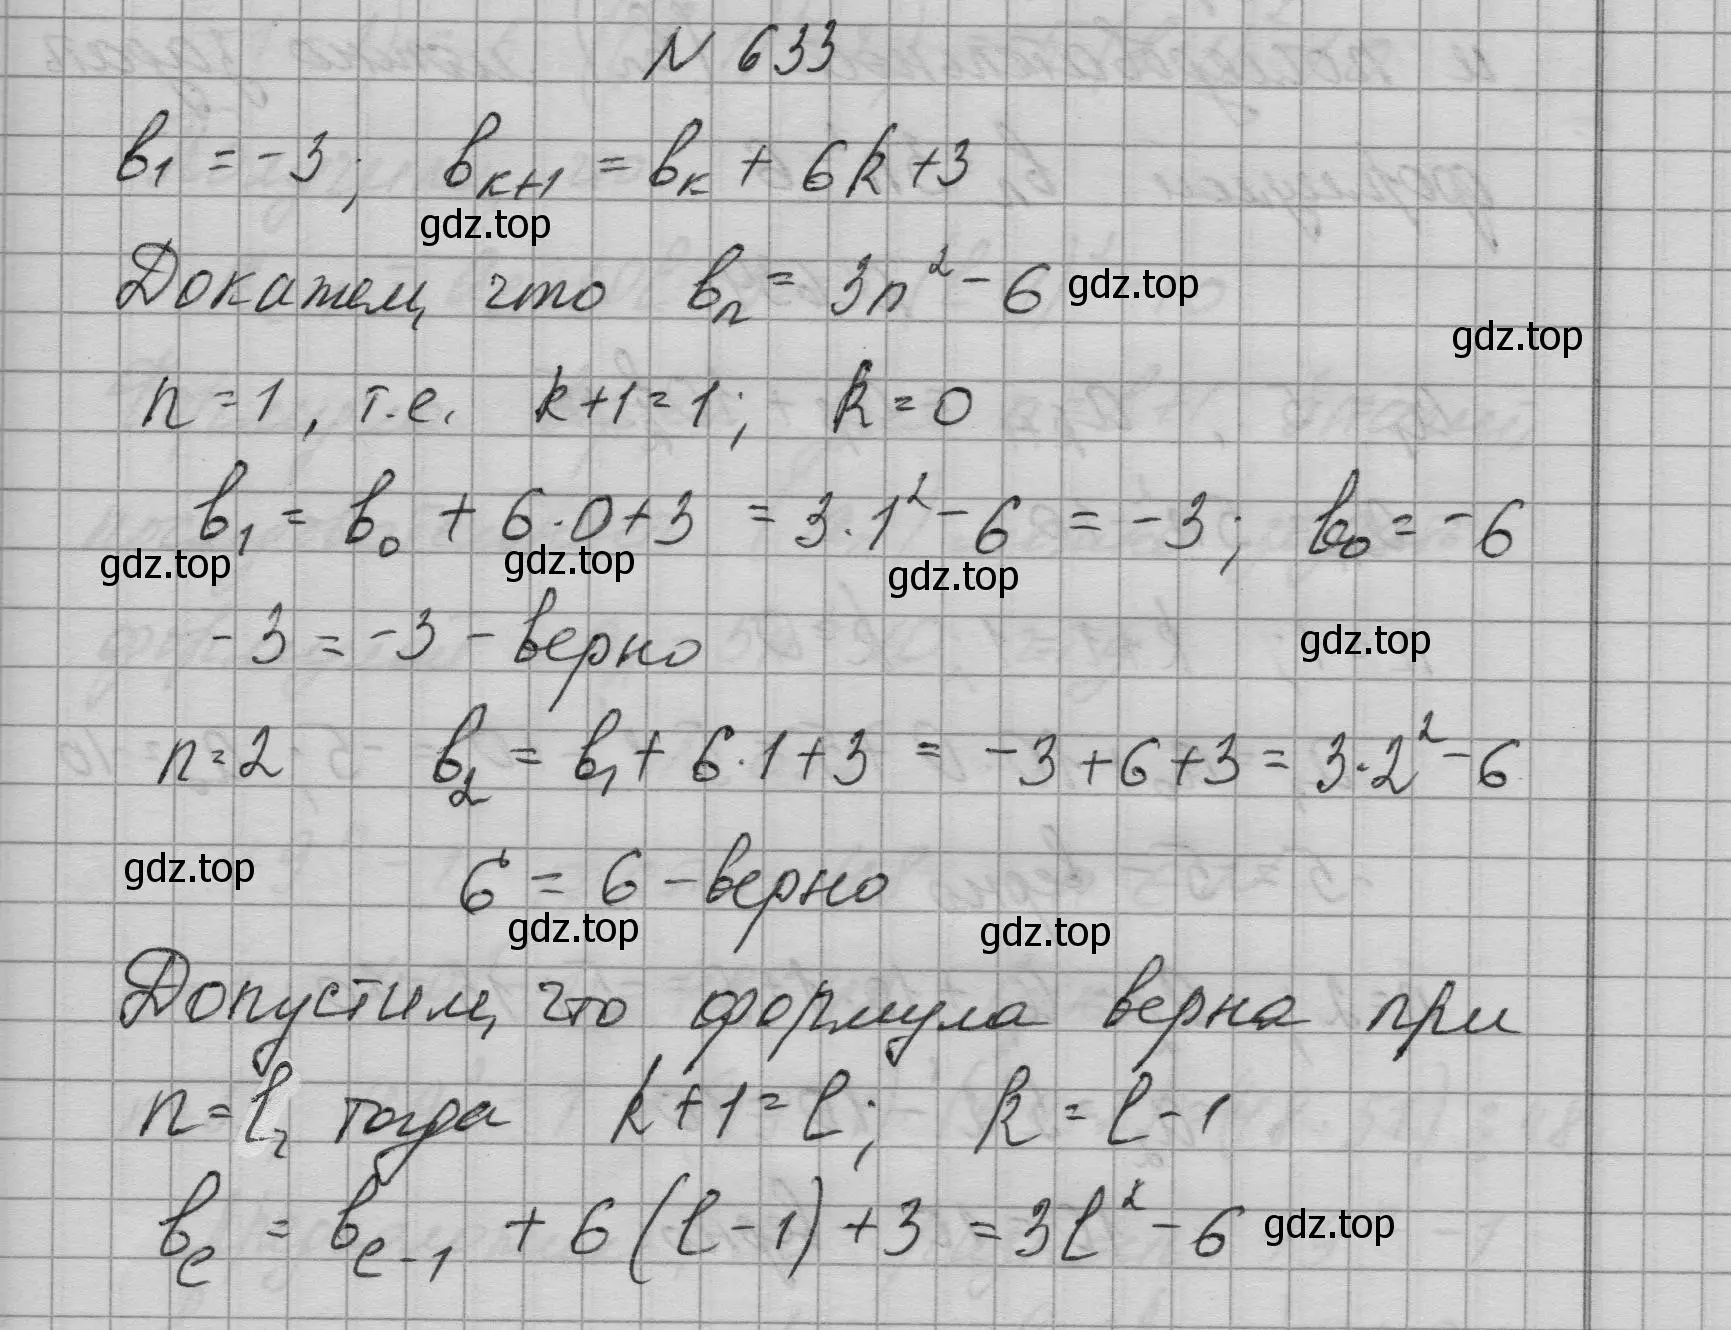 N 633
b₁ = -3; b_{k+1} = b_k + 6k + 3
gdz.top
Докажем, что b_n = 3n² - 6 gdz.top
gdz.top
n = 1, т.е. k+1 = 1; k = 0
b₁ = b₀ + 6·0 + 3 = 3·1² - 6 = -3; b₀ = -6
gdz.top gdz.top gdz.top
-3 = -3 - верно gdz.top
n = 2 b₂ = b₁ + 6·1 + 3 = -3 + 6 + 3 = 3·2² - 6
gdz.top 6 = 6 - верно
gdz.top gdz.top
Допустим, что формула верна при
n = l, тогда k+1 = l; k = l-1
b_l = b_{l-1} + 6(l-1) + 3 = 3l² - 6 gdz.top